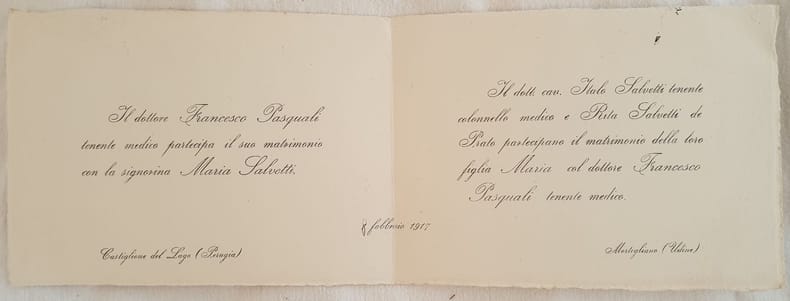 Il dottore Francesco Pasquali
tenente medico partecipa il suo matrimonio
con la signorina Maria Salvetti.
Castiglione del Lago (Perugia)
Il dott. cav. Italo Salvetti tenente
colonnello medico e Rita Salvetti de
Prato partecipano il matrimonio della loro
figlia Maria col dottore Francesco
Pasquali tenente medico.
Mortigliano (Udine)
8 febbraio 1917